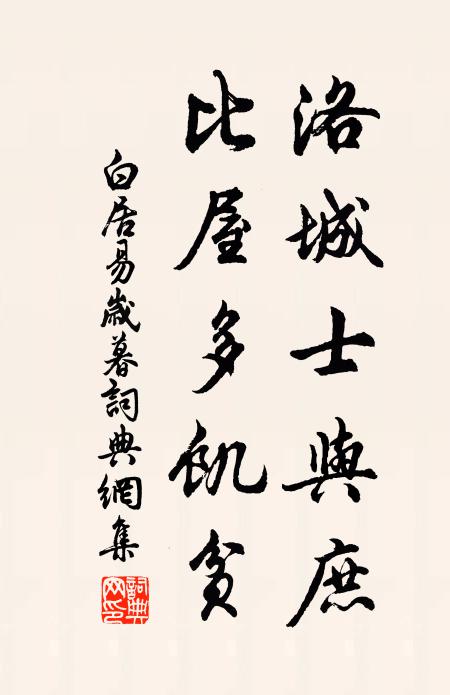 洛城士與庶
比屋多飢貧
白居易歲暮詞典網集
詞典
网印